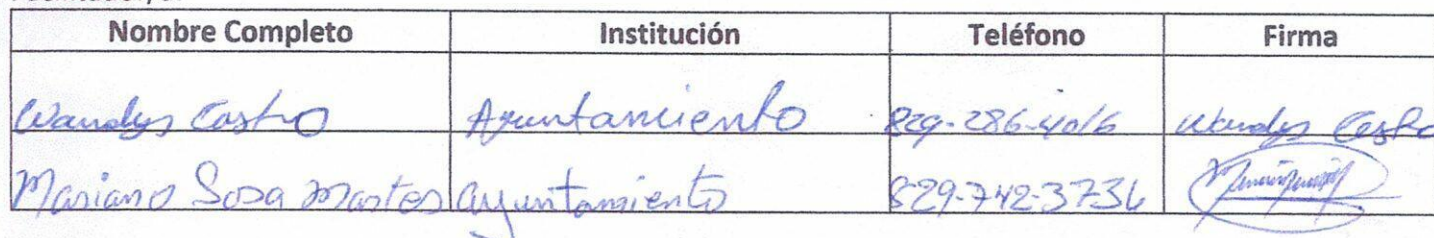 Nombre Completo Institución Teléfono Firma
Wandys Castro Ayuntamiento 829-286-4016 Wandys Castro
Mariano Sosa Ayuntamiento 829-742-3736